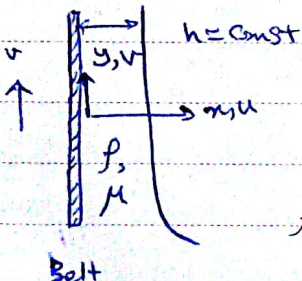 h = Const
v
y, v
x, u
ρ,
μ
Belt